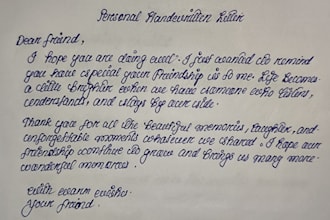 Personal Handwritten Letter
Dear friend,
I hope you are doing well. I just wanted to remind
you have special your friendship is to me. Life becomes
a little brighter when we have someone who listens,
understands, and stays by our side.
Thank you for all the beautiful memories, laughter, and
unforgettable moments whatever we shared. I hope our
friendship continue to grow and brings us many more
wonderful memories.
With warm wishes.
Your friend.